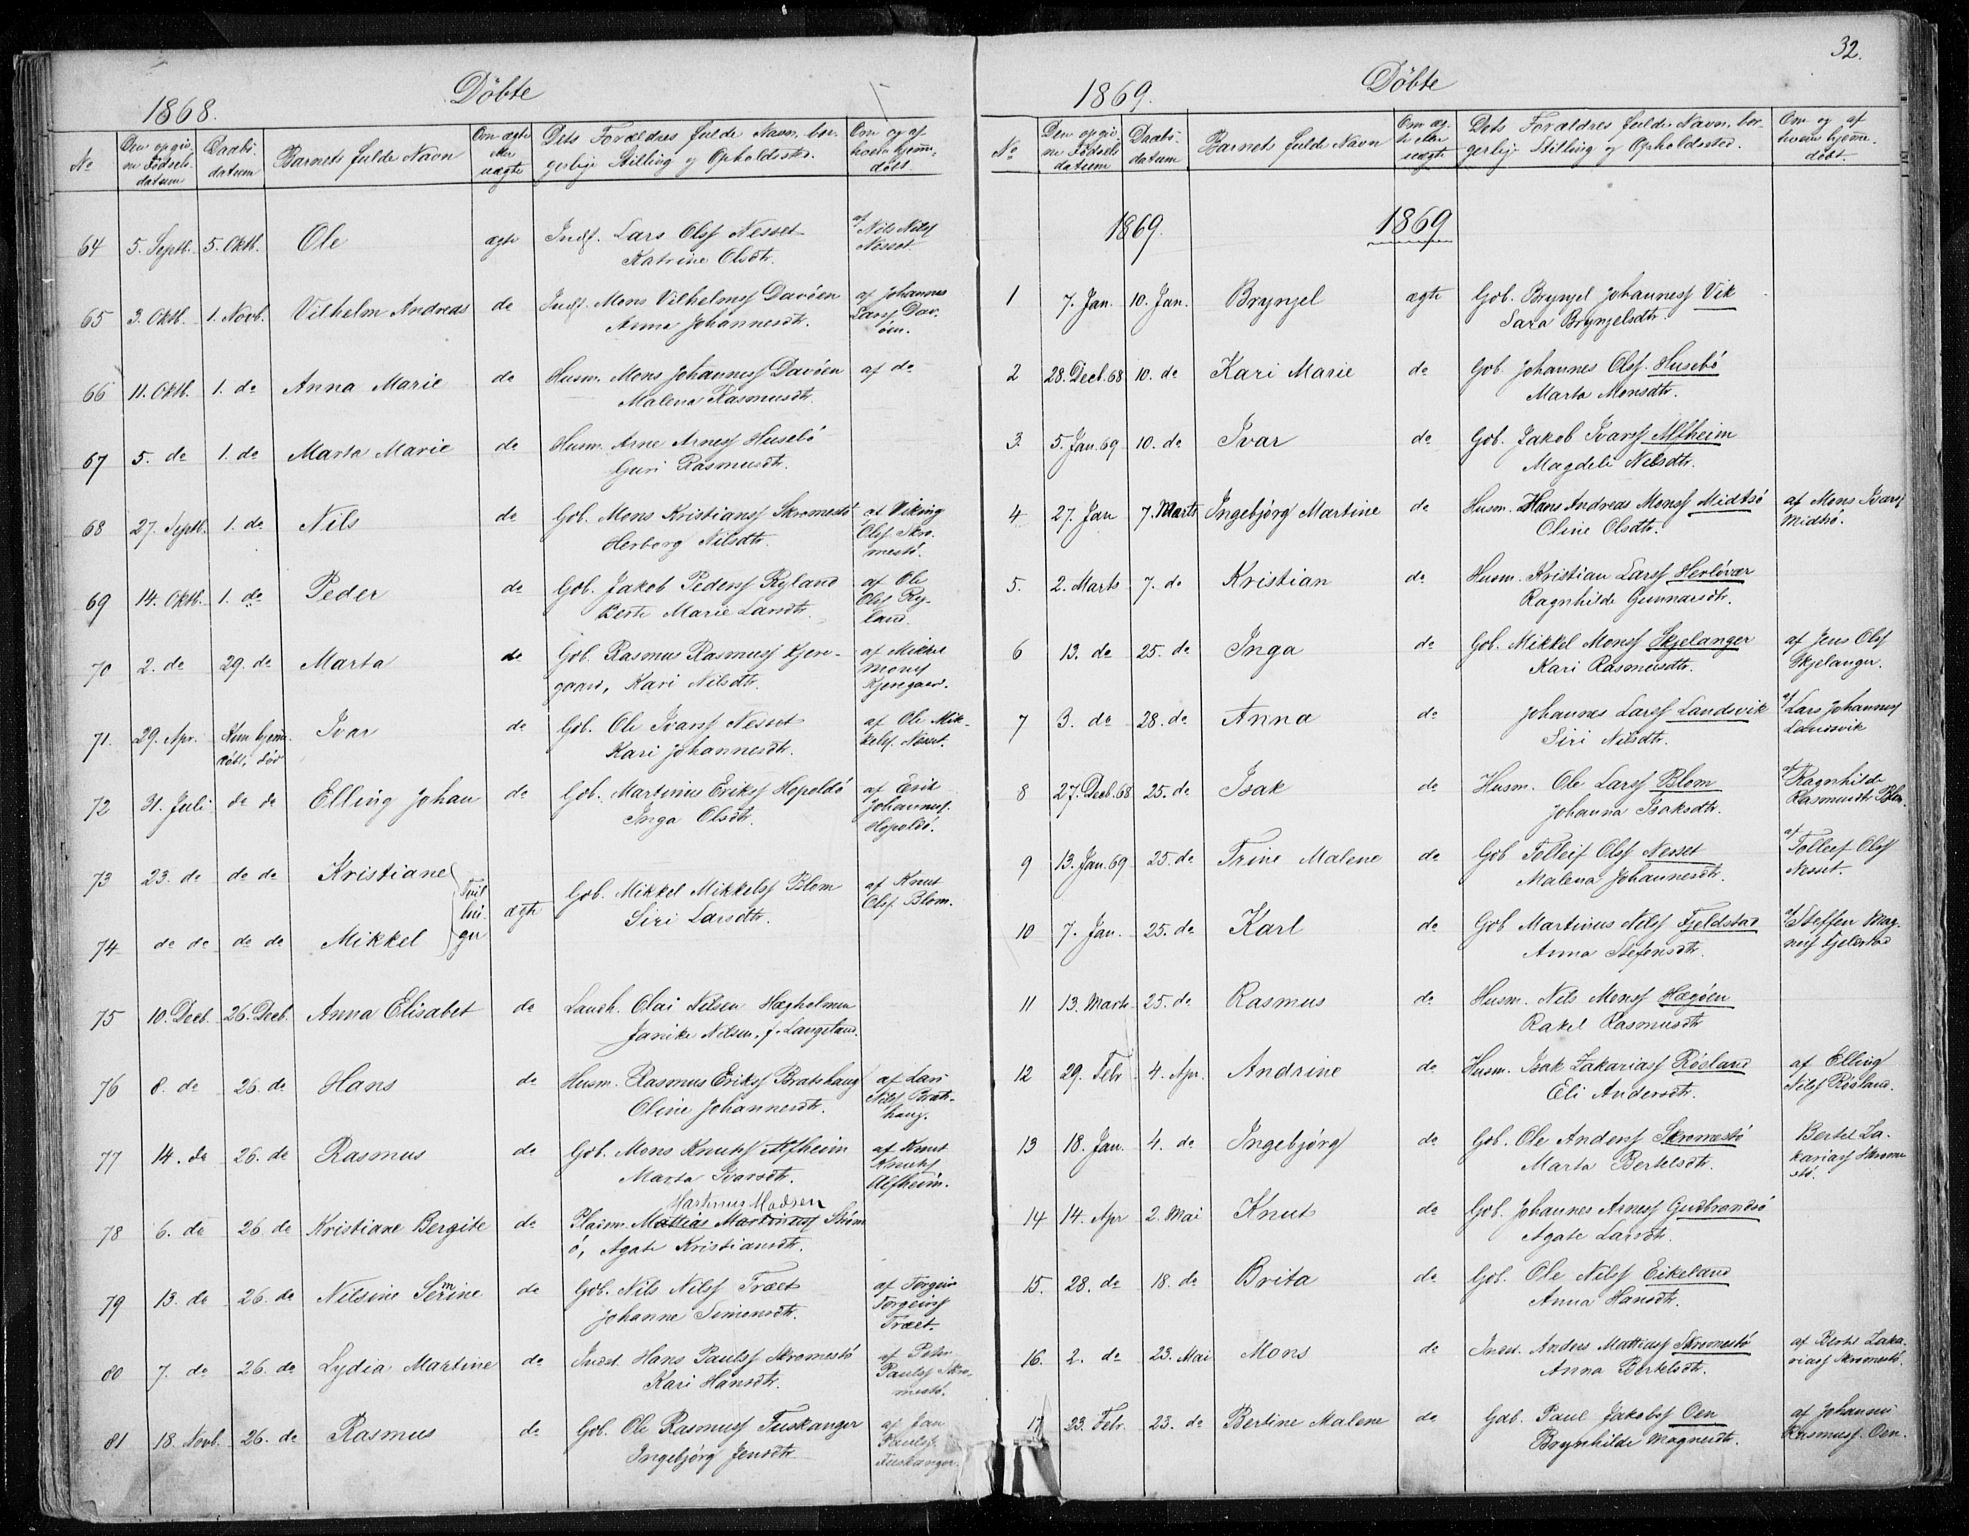 1868.
Döbte
No
Den opgiv-
ne Födsels
datum
Daabs-
datum
Barnets fulde Navn
Om ægte
eller
uægte
Dets Forældres fulde Navn, bor-
gerlige Stilling og Opholdssted.
Om og af
hvem hjemme-
döbt.
64 5. Septb. 5. Oktb. Ole ægte Indf. Lars Olsf Nesset
Katrine Olsdtr.
af Nils Nilsf
Nesset
65 3. Oktb. 1. Novb. Vilhelm Andreas do Indf. Mons Vilhelmsf Davöen
Anna Johannesdtr.
af Johannes
Larsf Dav-
öen.
66 11. Oktb. 1. do Anna Marie do Husm. Mons Johannesf Davöen
Malena Rasmusdtr.
af do
67 5. do 1. do Marta Marie do Husm. Arne Arnesf Husebö
Guri Rasmusdtr.
68 27. Septb. 1. do Nils do Gbb. Mons Kristiansf Skromestö
Herborg Nilsdtr.
af Viking
Olsf Skro-
mestö.
69 14. Oktb. 1. do Peder do Gbb. Jakob Pedersf Ryland
Berte Marie Larsdtr.
af Ole
Olsf Ry-
land.
70 2. do 29. do Marta do Gbb. Rasmus Rasmusf Kjere-
gaard, Kari Nilsdtr.
af Mikkel
Monsf
Kjeregaard.
71. 29. Apr. Kun hjemme-
döbt, död
Ivar do Gbb. Ole Ivarsf Nesset
Kari Johannesdtr.
af Ole Mik-
kelsf. Nesset.
72 31. Juli do do Elling Johan do Gbb. Martinus Eriksf Hopoldö
Inga Olsdtr.
af Erik
Johannesf.
Hopoldö.
73 23. do do do Kristiane
Tvil
lin
ger
ægte Gbb. Mikkel Mikkelsf Blom
Siri Larsdtr.
af Knut
Olsf. Blom.
74 do do do do Mikkel
75 10. Decb. 26. Decb. Anna Elisabet do Landh. Olai Nilsen Hægholmen
Janike Nilsen, f. Langeland.
76 8. do 26. do Hans do Husm. Rasmus Eriksf Bratshaug
Oline Johannesdtr.
af Lars
Nilsf Brats-
haug.
77 14. do 26. do Rasmus do Gbb. Mons Knutsf Alfheim
Marta Ivarsdtr.
af Knut
Knutsf
Alfheim.
Martinus Madsen
78 6. do 26 do Kristiane Bergite do Pladsm. Mattias Martinusf Ström
ö, Agate Kristiansdtr.
79 13. do 26. do Nilsine Semine do Gbb. Nils Nilsf Træet
Johanne Simonsdtr.
af Torgeis
Torgeisf
Træet.
80 7. do 26. do Lydia Martine do Indst. Hans Paulsf Skromestö
Kari Hansdtr.
af Peter
Paulsf Skro-
mestö.
81 18. Novb. 26. do Rasmus do Gbb. Ole Rasmusf Tuskanger
Ingebjörg Jensdtr.
af Jan
Paulsf.
Tuskanger.
32.
1869.
Döbte
No
Den opgiv-
ne Födsels
datum
Daabs-
datum
Barnets fuld Navn
Om æg-
te eller
uægte
Dets Forældres fulde Navn, bor-
gerlig Stilling og Opholdssted.
Om og af
hvem hjemme-
döbt.
1869. 1869
1 7. Jan. 10. Jan. Brynjel ægte Gbb. Brynjel Johannesf Vik
Sara Brynjelsdtr.
2 28. Decb. 68 10. do Kari Marie do Gbb. Johannes Olsf. Husebö
Marta Monsdtr.
3. 5. Jan. 69 10. do Ivar do Gbb. Jakob Ivarsf Alfheim
Magdeli Nilsdtr.
4 27. Jan 7. Marts Ingebjörg Martine do Husm. Hans Andreas Monsf Midtsö
Oline Olsdtr.
af Mons Ivarsf
Midtsö.
5. 2. Marts 7. do Kristian do Husm. Kristian Larsf Herlövær
Ragnhilde Gunnarsdtr.
6 13. do 25. do Inga do Gbb. Mikkel Monsf Skjelanger
Kari Rasmusdtr.
af Jens Olsf
Skjelanger.
7 3. do 28. do Anna do Johannes Larsf Landsvik
Siri Nilsdtr.
af Lars Johannesf
Landsvik
8 27. Decb. 68 25. do Isak do Husm. Ole Larsf Blom
Johanna Isaksdtr.
af Ragnhilde
Rasmusdtr Blom.
9 13. Jan. 69 25. do Trine Malene do Gbb Tolleif Olsf Nesset
Malena Johannesdtr.
af Tolleif Olsf
Nesset.
10 7. Jan. 25. do Karl do Gbb Martinus Nilsf Fjeldstad
Anna Stefensdtr.
af Steffen Mag-
nusf Fjeldstad
11 13. Marts 25. do Rasmus do Husm. Nils Monsf Hægöen
Rakel Rasmusdtr
12 29. Febr 4. Apr. Andrine do Husm. Isak Zakariasf Rösland
Eli Andersdtr.
af Elling
Nilsf Rösland.
13 18. Jan. 4. do Ingebjörg do Gbb. Ole Andersf Skromestö
Marta Bertelsdtr.
Bertel Za-
kariasf Skrome
stö.
14 14. Apr 2. Mai Knut do Gbb. Johannes Arnesf Gudbrandsö
Agate Larsdtr.
15. 28. do 18. do Brita do Gbb. Ole Nilsf Eikeland
Anna Hansdtr.
16. 2. do 23. Mai Mons do Indst. Anders Mattiasf Skromestö
Anna Bertelsdtr.
af Bertel Zaka-
riasf Skromestö.
17 23. Febr. 23. do Bertine Malene do Gbb. Paul Jakobsf Oen
Brynhilde Magnesdtr.
af Johannes
Rasmusf. Oen.